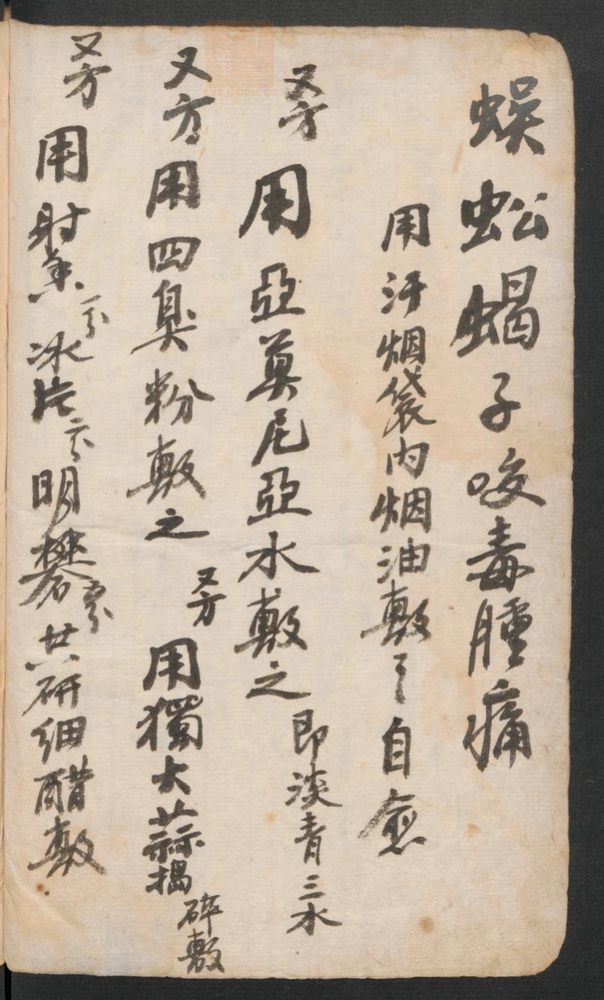 蜈蚣蝎子咬毒腫痛
用汗烟袋内烟油敷了自愈
又方 用亞莫尼亞水敷之 即淡青三水
又方 用四臭粉敷之
又方 用獨大蒜搗碎敷
又方 用射香一分 冰片二分 明礬 共研细醋敷